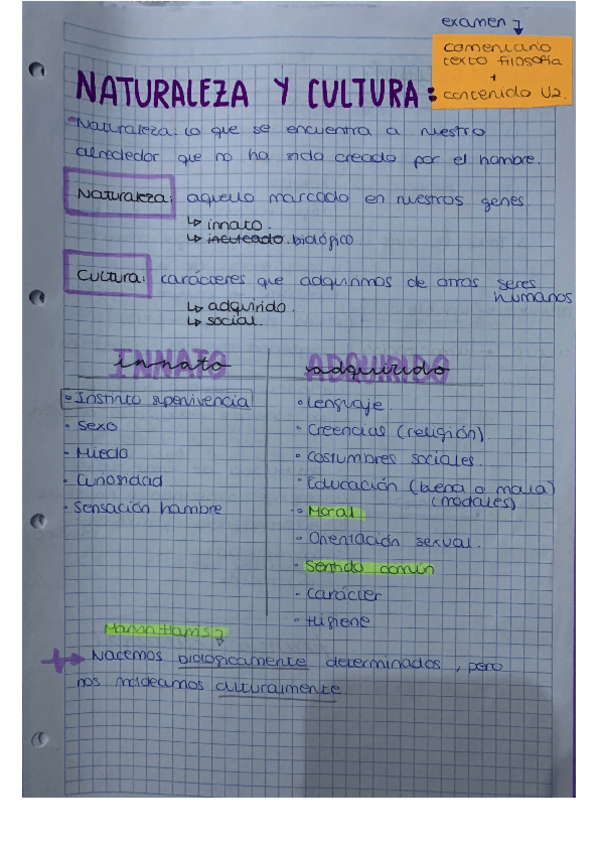 examen
comentario
texto filosofía
+
contenido U2.
NATURALEZA Y CULTURA:
Naturaleza: lo que se encuentra a nuestro
alrededor que no ha sido creado por el hombre.
Naturaleza: aquello marcado en nuestros genes
↳ innato.
↳ inculcado. biológico
Cultura: carácteres que adquirimos de otros seres
humanos
↳ adquirido.
↳ social.
INNATO innato
ADQUIRIDO adquirido
• Instinto supervivencia
- Sexo
- Miedo
- Curiosidad
- Sensación hambre
• Lenguaje
- Creencias (religión)
• Costumbres sociales.
- Educación (buena o mala)
(modales)
• Moral
- Orientación sexual.
- Sentido común
- Carácter
- Higiene
Marvin Harris
Nacemos biológicamente determinados, pero
nos moldeamos culturalmente